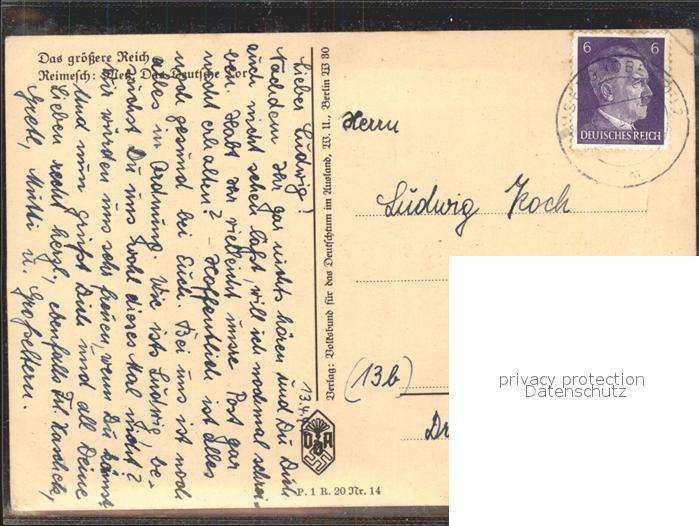 Das größere Reich
Reimesch: Metz, Das Deutsche Tor
13.4.
Lieber Ludwig!
Nachdem Ihr gar nichts hören und Du Dich
auch nicht sehen läßt, will ich nochmal schrei-
ben. Habt Ihr vielleicht unsre Post gar
nicht erhalten? – Hoffentlich ist alles
noch gesund bei Euch. Bei uns ist noch
alles in Ordnung. Wie ists Ludwig, be-
suchst Du uns wohl dieses Mal nicht?
Wir würden uns sehr freuen, wenn Du kämst
Und nun grüßt Dich und all Deine
Lieben recht herzl., ebenfalls Frl.
Gretl, Mutti u. Großeltern.
Verlag: Volksbund für das Deutschtum im Ausland, W. 11., Berlin W 30
VDA
P. 1 R. 20 Nr. 14
6 6
DEUTSCHES REICH
Herrn
Ludwig Koch
(13b)
Dr
privacy protection
Datenschutz